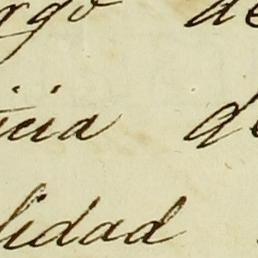 rgo de
icia de
lidad